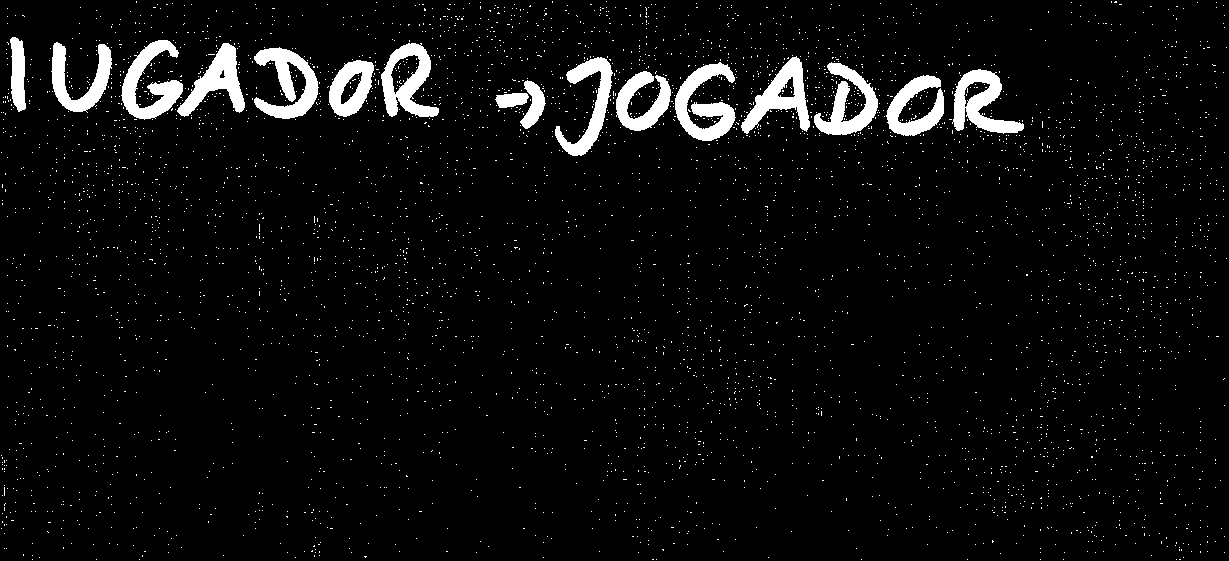 IUGADOR → JOGADOR